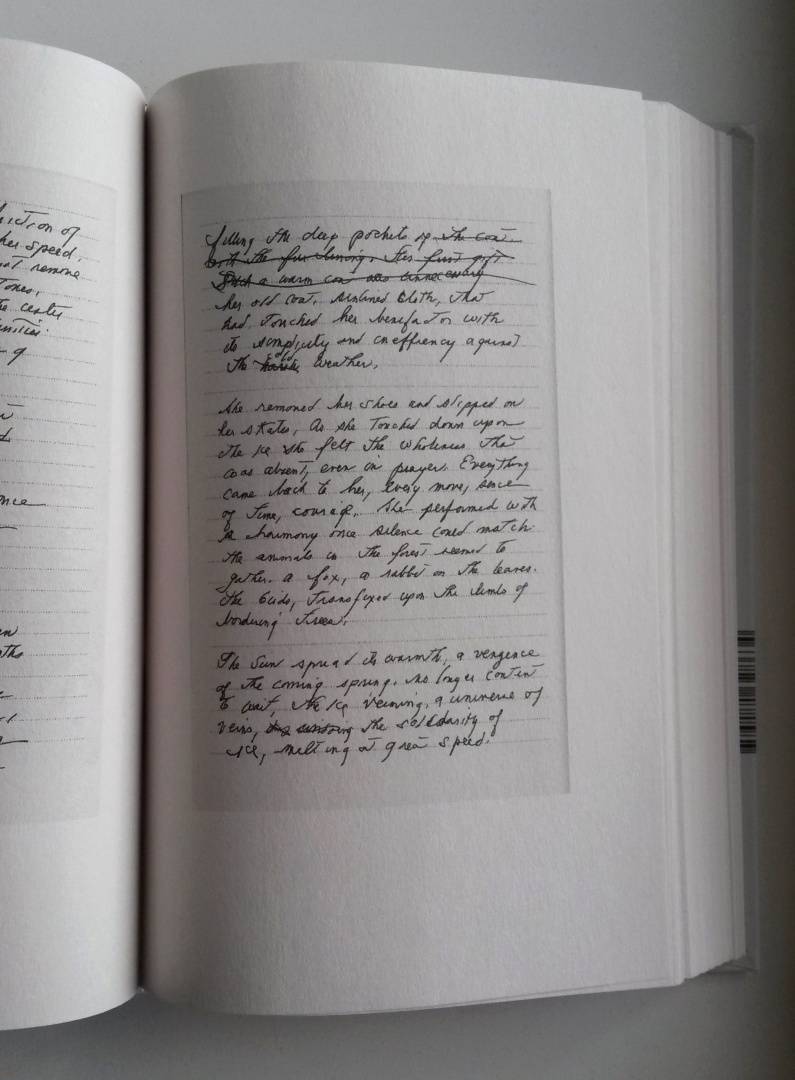 hiction of
her speed.
not remove
Tones,
the center
g
nce
en
ths
filling the deep pockets of the coat
with the fur lining. His first gift
Such a warm coat was unnecessary
her old coat, simlined cloth, that
had touched her benefactor with
its simplicity and inefffiency against
the harsh cold weather.
She removed her shoes and slipped on
her skates, As she touched down upon
the ice she felt the wholeness that
was absent, even in prayer. Everything
came back to her, every move, sense
of time, courage. She performed with
a harmony once silence could match
the animals in the forest seemed to
gather. a fox, a rabbit on the leaves.
the birds, transfixed upon the limbs of
bordering trees.
The Sun spread its warmth, a vengence
of the coming spring. no longer content
to wait, the ice veining, a universe of
veins, the solidarity of
ice, melting at great speed.